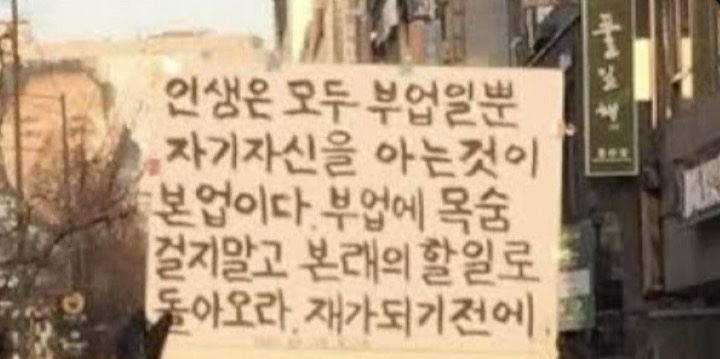 인생은 모두 부업일뿐
자기자신을 아는것이
본업이다. 부업에 목숨
걸지말고 본래의 할일로
돌아오라. 재가되기전에.